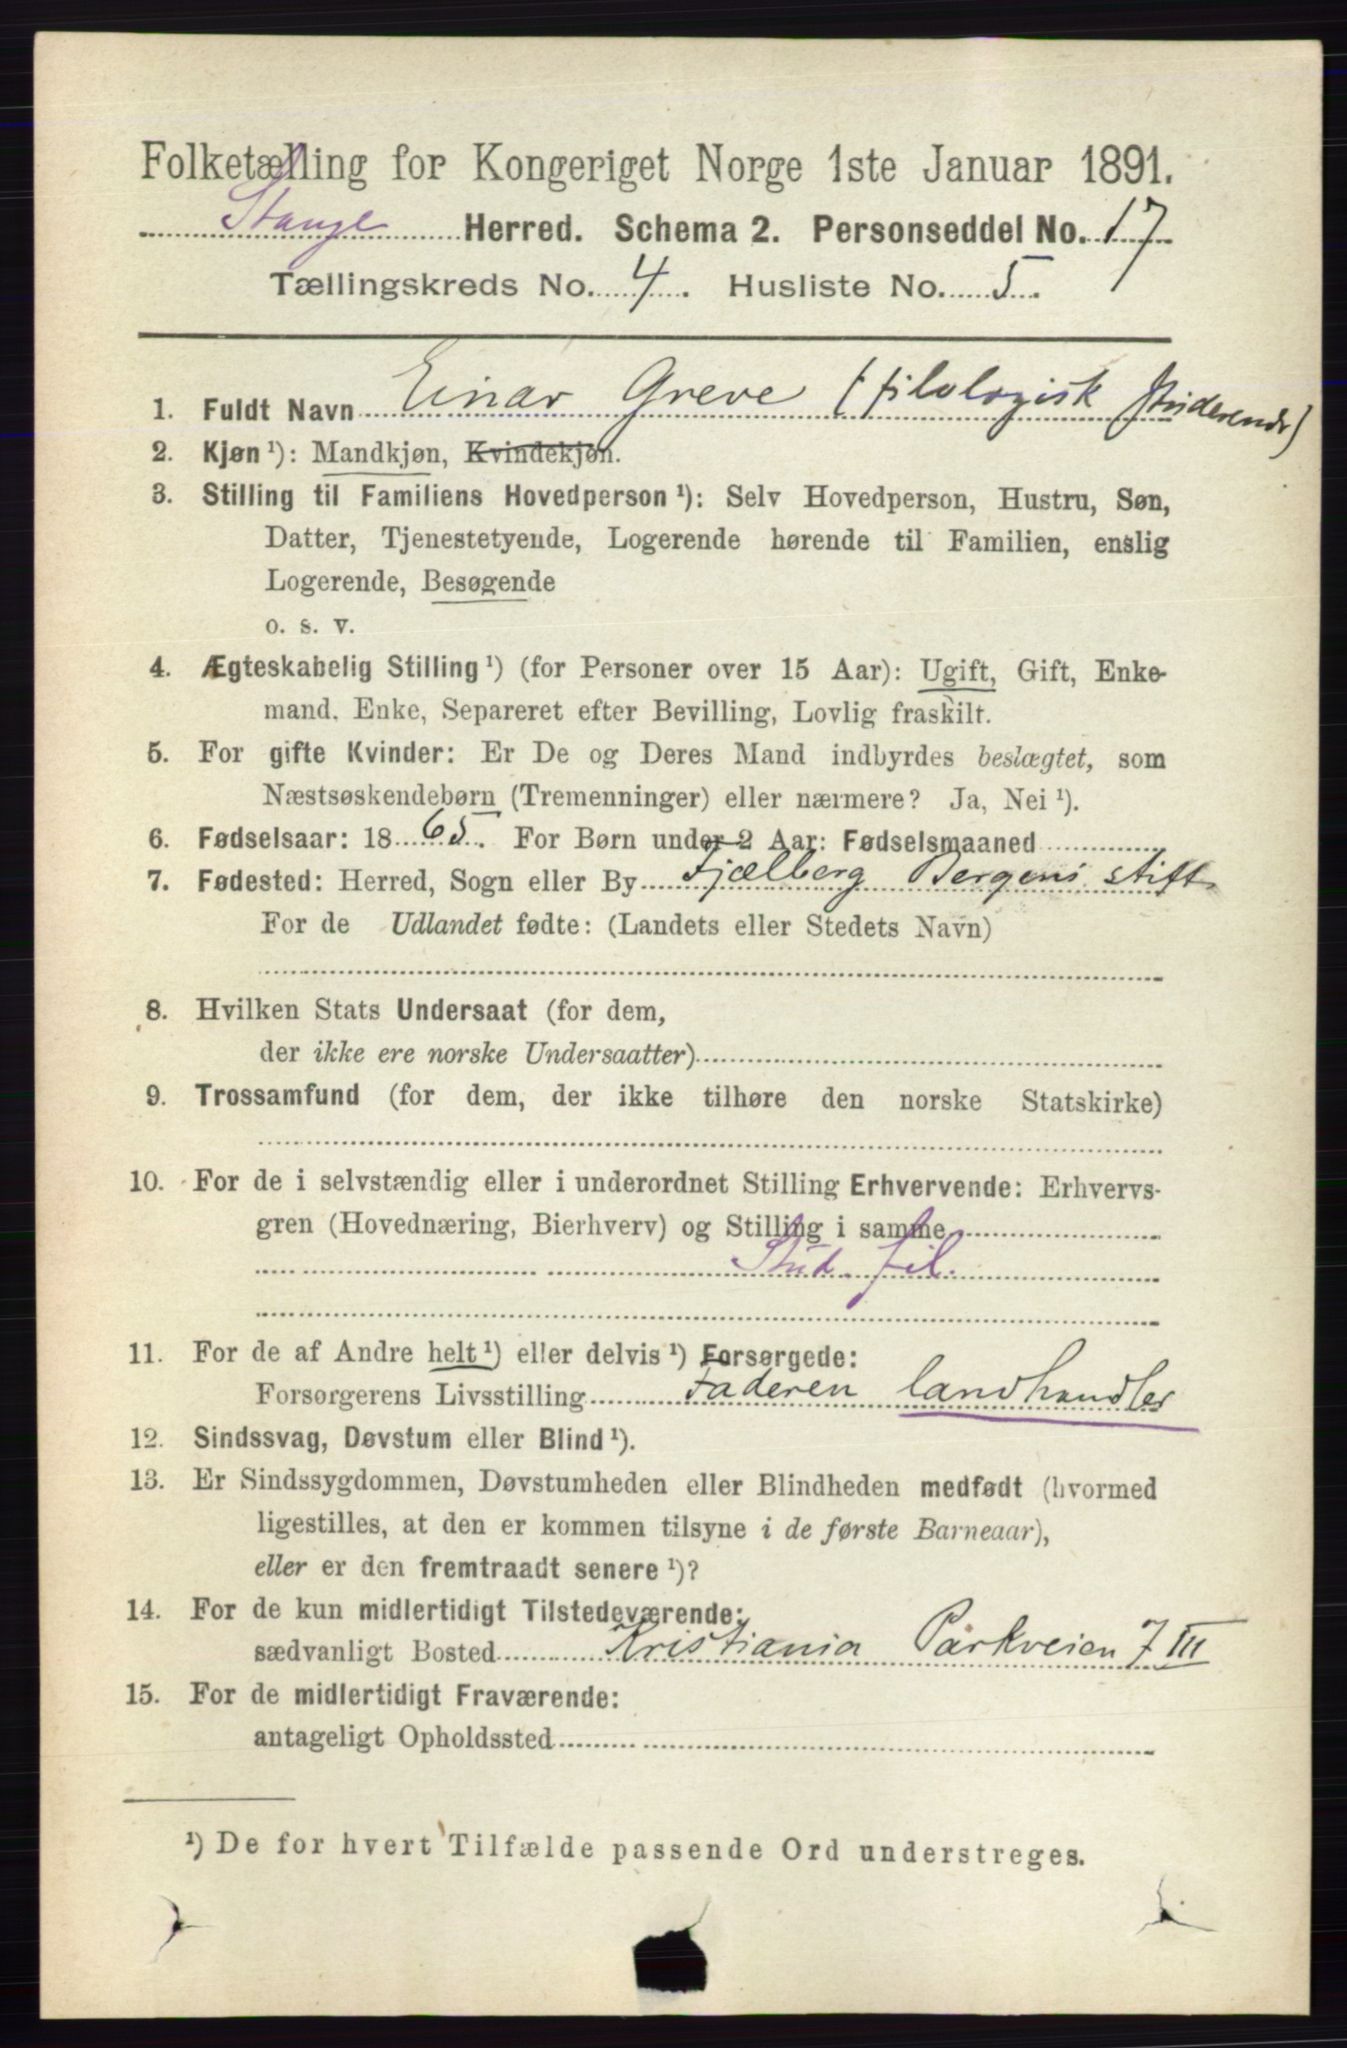 Folketælling for Kongeriget Norge 1ste Januar 1891.
Stange Herred. Schema 2. Personseddel No. 17
Tællingskreds No. 4. Husliste No. 5.
1. Fuldt Navn Einar Greve (filologisk studerende)
2. Kjøn ¹): Mandkjøn, Kvindekjøn.
3. Stilling til Familiens Hovedperson ¹): Selv Hovedperson, Hustru, Søn,
Datter, Tjenestetyende, Logerende hørende til Familien, enslig
Logerende, Besøgende
o. s. v.
4. Ægteskabelig Stilling ¹) (for Personer over 15 Aar): Ugift, Gift, Enke-
mand, Enke, Separeret efter Bevilling, Lovlig fraskilt.
5. For gifte Kvinder: Er De og Deres Mand indbyrdes beslægtet, som
Næstsøskendebørn (Tremenninger) eller nærmere? Ja, Nei ¹).
6. Fødselsaar: 1865. For Børn under 2 Aar: Fødselsmaaned
7. Fødested: Herred, Sogn eller By Fjælberg Bergens stift
For de Udlandet fødte: (Landets eller Stedets Navn)
8. Hvilken Stats Undersaat (for dem,
der ikke ere norske Undersaatter)
9. Trossamfund (for dem, der ikke tilhøre den norske Statskirke)
10. For de i selvstændig eller i underordnet Stilling Erhvervende: Erhvervs-
gren (Hovednæring, Bierhverv) og Stilling i samme
Stud. fil.
11. For de af Andre helt ¹) eller delvis ¹) Forsørgede:
Forsørgerens Livsstilling Faderen landhandler
12. Sindssvag, Døvstum eller Blind ¹).
13. Er Sindssygdommen, Døvstumheden eller Blindheden medfødt (hvormed
ligestilles, at den er kommen tilsyne i de første Barneaar),
eller er den fremtraadt senere ¹)?
14. For de kun midlertidigt Tilstedeværende:
sædvanligt Bosted Kristiania Parkveien 7 III
15. For de midlertidigt Fraværende:
antageligt Opholdssted
¹) De for hvert Tilfælde passende Ord understreges.